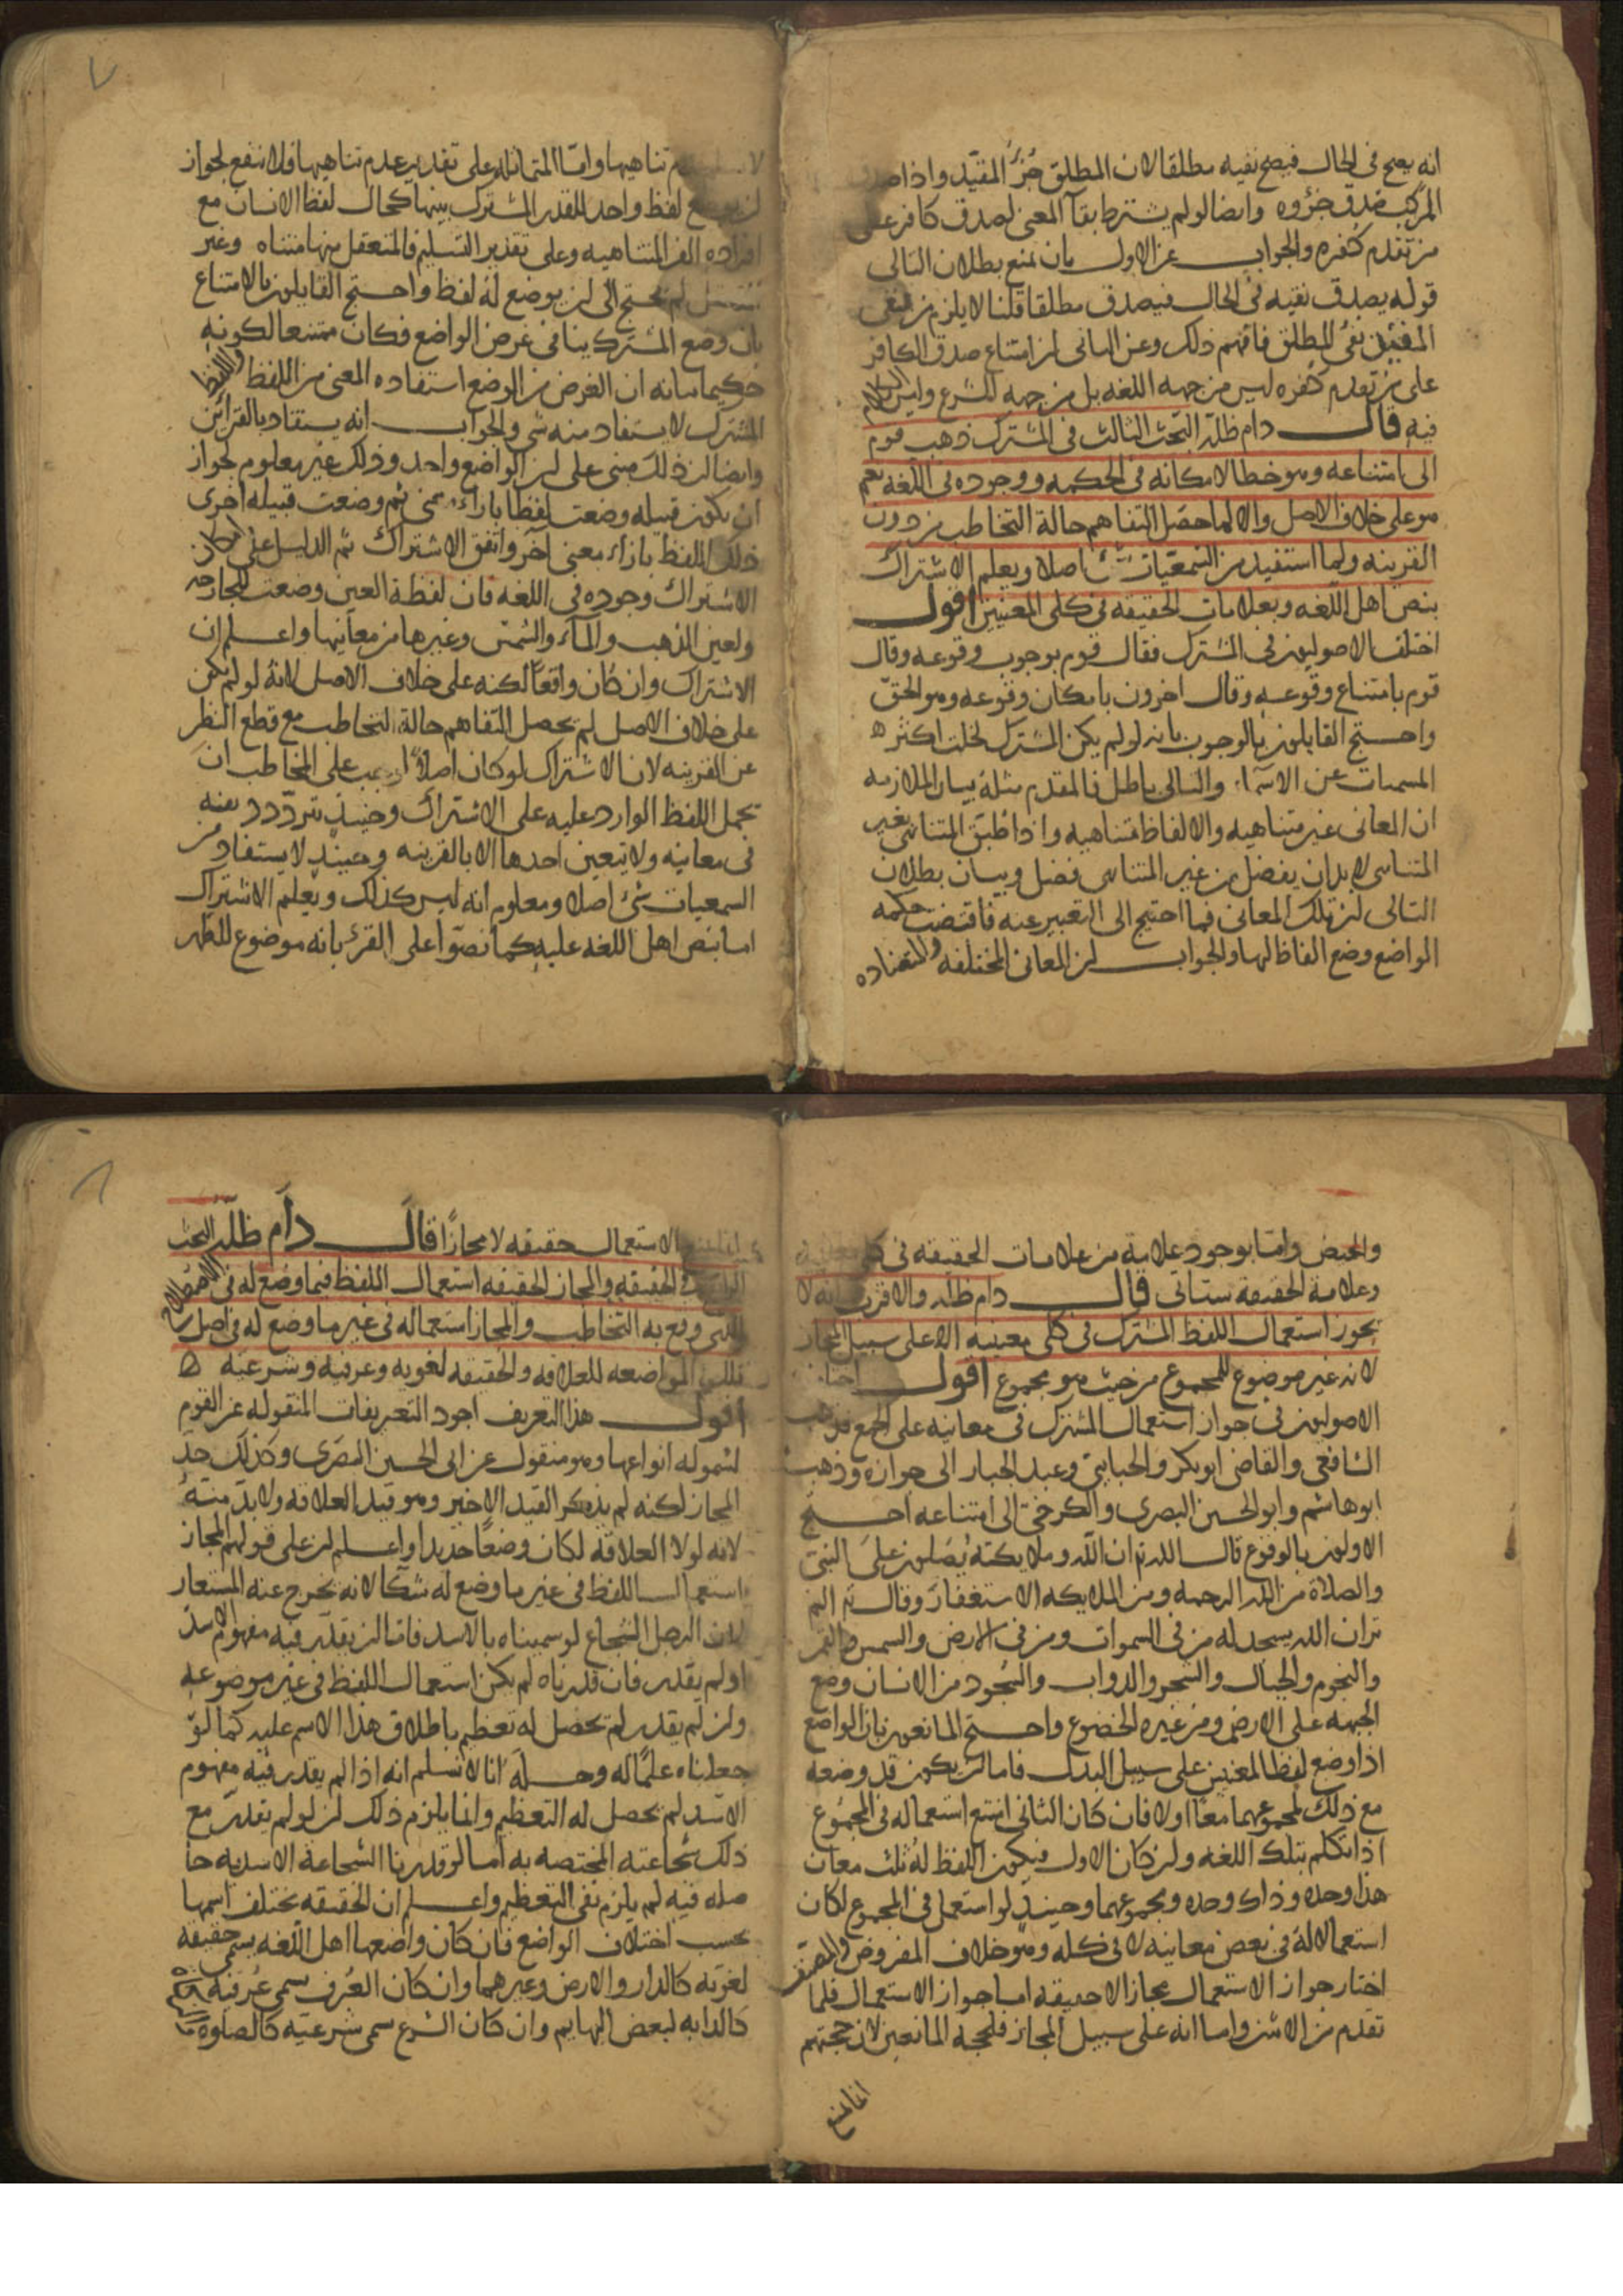 انه يصح في الحال فيصح نفيه مطلقا لان المطلق جزء المقيد واذا صدق
المركب صدق جزؤه وايضا لو لم يشترط بقاء المعنى لصدق كافر على
من تقدم كفره والجواب عن الاول بان نمنع بطلان التالى
قوله يصدق نفيه في الحال فيصدق مطلقا قلنا لا يلزم من نفى
المقيد نفى المطلق فافهم ذلك وعن الثاني ان امتناع صدق الكافر
على من تقدم كفره ليس من جهه اللغه بل من جهه الشرع وليس الكلام
فيه قال دام ظله البحث الثالث في المشترك ذهب قوم
الى امتناعه وهو خطا لامكانه في الحكمه ووجوده في اللغه نعم
هو على خلاف الاصل والا لما حصل التفاهم حالة التخاطب من دون
القرينه ولما استفيد من السمعيات شئ اصلا ويعلم الاشتراك
بنص اهل اللغه وبعلامات الحقيقه في كلى المعنيين اقول
اختلف الاصوليون في المشترك فقال قوم بوجوب وقوعه وقال
قوم بامتناع وقوعه وقال اخرون بامكان وقوعه وهو الحق
واحتج القايلون بالوجوب بانه لو لم يكن المشترك لخلت اكثر
المسميات عن الاسماء والتالى باطل فالمقدم مثله بيان الملازمه
ان المعانى غير متناهيه والالفاظ متناهيه واذا طبق المتناهى بغير
المتناهى لا بد ان يفضل من غير المتناهى فضل وبيان بطلان
التالى ان تلك المعانى مما احتيج الى التعبير عنه فاقتضت حكمه
الواضع وضع الفاظ لها والجواب ان المعانى المختلفه والمتضاده
تناهيها واما المتماثله على تقدير عدم تناهيها فلا ينفع لجواز
لفظ واحد للقدر المشترك بينها كحال لفظ الانسان مع
افراده الغير المتناهيه وعلى تقدير التسليم فالمتعقل منها متناه وغير
لم يحتج الى ان يوضع له لفظ واحتج القايلون بالامتناع
بان وضع المشترك ينافى غرض الواضع فكان ممتنعا لكونه
حكيما بيانه ان الغرض من الوضع استفاده المعنى من اللفظ واللفظ
المشترك لا يستفاد منه شى والجواب انه يستفاد بالقراين
وايضا ان ذلك مبنى على ان الواضع واحد وذلك غير معلوم لجواز
ان يكون قبيله وضعت لفظا بازاء معنى ثم وضعت قبيله اخرى
ذلك اللفظ بازاء معنى آخر واتفق الاشتراك ثم الدليل على امكان
الاشتراك وجوده في اللغه فان لفظة العين وضعت للجارحه
ولعين الذهب والماء والشمس وغيرها من معانيها واعلم ان
الاشتراك وان كان واقعا لكنه على خلاف الاصل لانه لو لم يكن
على خلاف الاصل لم يحصل التفاهم حالة التخاطب مع قطع النظر
عن القرينه لان الاشتراك لو كان اصلا لوجب على المخاطب ان
يحمل اللفظ الوارد عليه على الاشتراك وحينئذ يتردد ذهنه
في معانيه ولا يتعين احدها الا بالقرينه وحينئذ لا يستفاد من
السمعيات شئ اصلا ومعلوم انه ليس كذلك ويعلم الاشتراك
اما بنص اهل اللغه عليه كما نصوا على القرء بانه موضوع للطهر
والحيض واما بوجود علامة من علامات الحقيقه في كلى معنييه
وعلامة الحقيقه ستاتى قال دام ظله والاقرب انه لا
يجوز استعمال اللفظ المشترك في كلى معنييه الا على سبيل المجاز
لانه غير موضوع للمجموع من حيث هو مجموع اقول اختلف
الاصوليون في جواز استعمال المشترك في معانيه على الجمع فذهب
الشافعى والقاضى ابو بكر والجبايى وعبد الجبار الى جوازه وذهب
ابو هاشم وابو الحسين البصرى والكرخى الى امتناعه احتج
الاولون بالوقوع قال الله تع ان الله وملايكته يصلون على النبى
والصلاة من الله الرحمه ومن الملايكه الاستغفار وقال تع الم
تر ان الله يسجد له من في السموات ومن في الارض والشمس والقمر
والنجوم والجبال والشجر والدواب والسجود من الانسان وضع
الجبهه على الارض ومن غيره الخضوع واحتج المانعون بان الواضع
اذا وضع لفظا لمعنيين على سبيل البدل فاما ان يكون قد وضعه
مع ذلك لمجموعهما معا او لا فان كان الثانى امتنع استعماله في المجموع
اذا تكلم بتلك اللغه وان كان الاول فيكون اللفظ له ثلث معان
هذا وحده وذاك وحده ومجموعهما وحينئذ لو استعمل في المجموع لكان
استعمالا له في بعض معانيه لا في كله وهو خلاف المفروض والمصنف
اختار جواز الاستعمال مجازا لا حقيقه اما جواز الاستعمال فلما
تقدم من الاشتراك واما انه على سبيل المجاز فلحجه المانعين لان حجتهم
انما تمنع
الاستعمال حقيقه لا مجازا قال دام ظله البحث
الرابع في الحقيقه والمجاز الحقيقه استعمال اللفظ فيما وضع له في الاصطلاح
الذى وقع به التخاطب والمجاز استعماله في غير ما وضع له في اصل
تلك المواضعه للعلاقه والحقيقه لغويه وعرفيه وشرعيه
اقول هذا التعريف اجود التعريفات المنقوله عن القوم
لشموله انواعها وهو منقول عن ابى الحسين البصرى وكذلك حد
المجاز لكنه لم يذكر القيد الاخير وهو قيد العلاقه ولا بد منه
لانه لولا العلاقه لكان وضعا جديدا واعلم ان على قولهم المجاز
استعمال اللفظ في غير ما وضع له شكا لانه يخرج عنه المستعار
لان الرجل الشجاع لو سميناه بالاسد فاما ان يقدر فيه مفهوم الاسد
او لم يقدر فان قدرناه لم يكن استعمال اللفظ في غير موضوعه
وان لم يقدر لم يحصل له تعظيم باطلاق هذا الاسم عليه كما لو
جعلناه علما له وحله انا لا نسلم انه اذا لم يقدر فيه مفهوم
الاسد لم يحصل له التعظيم وانما يلزم ذلك ان لو لم يقدر مع
ذلك شجاعته المختصه به اما لو قدرنا الشجاعة الاسديه حا
صله فيه لم يلزم نفى التعظيم واعلم ان الحقيقه يختلف اسمها
بحسب اختلاف الواضع فان كان واضعها اهل اللغه يسمى حقيقه
لغويه كالدار والارض وغيرهما وان كان العرف سمى عرفيه
كالدابه لبعض البهايم وان كان الشرع سمى شرعيه كالصلوة